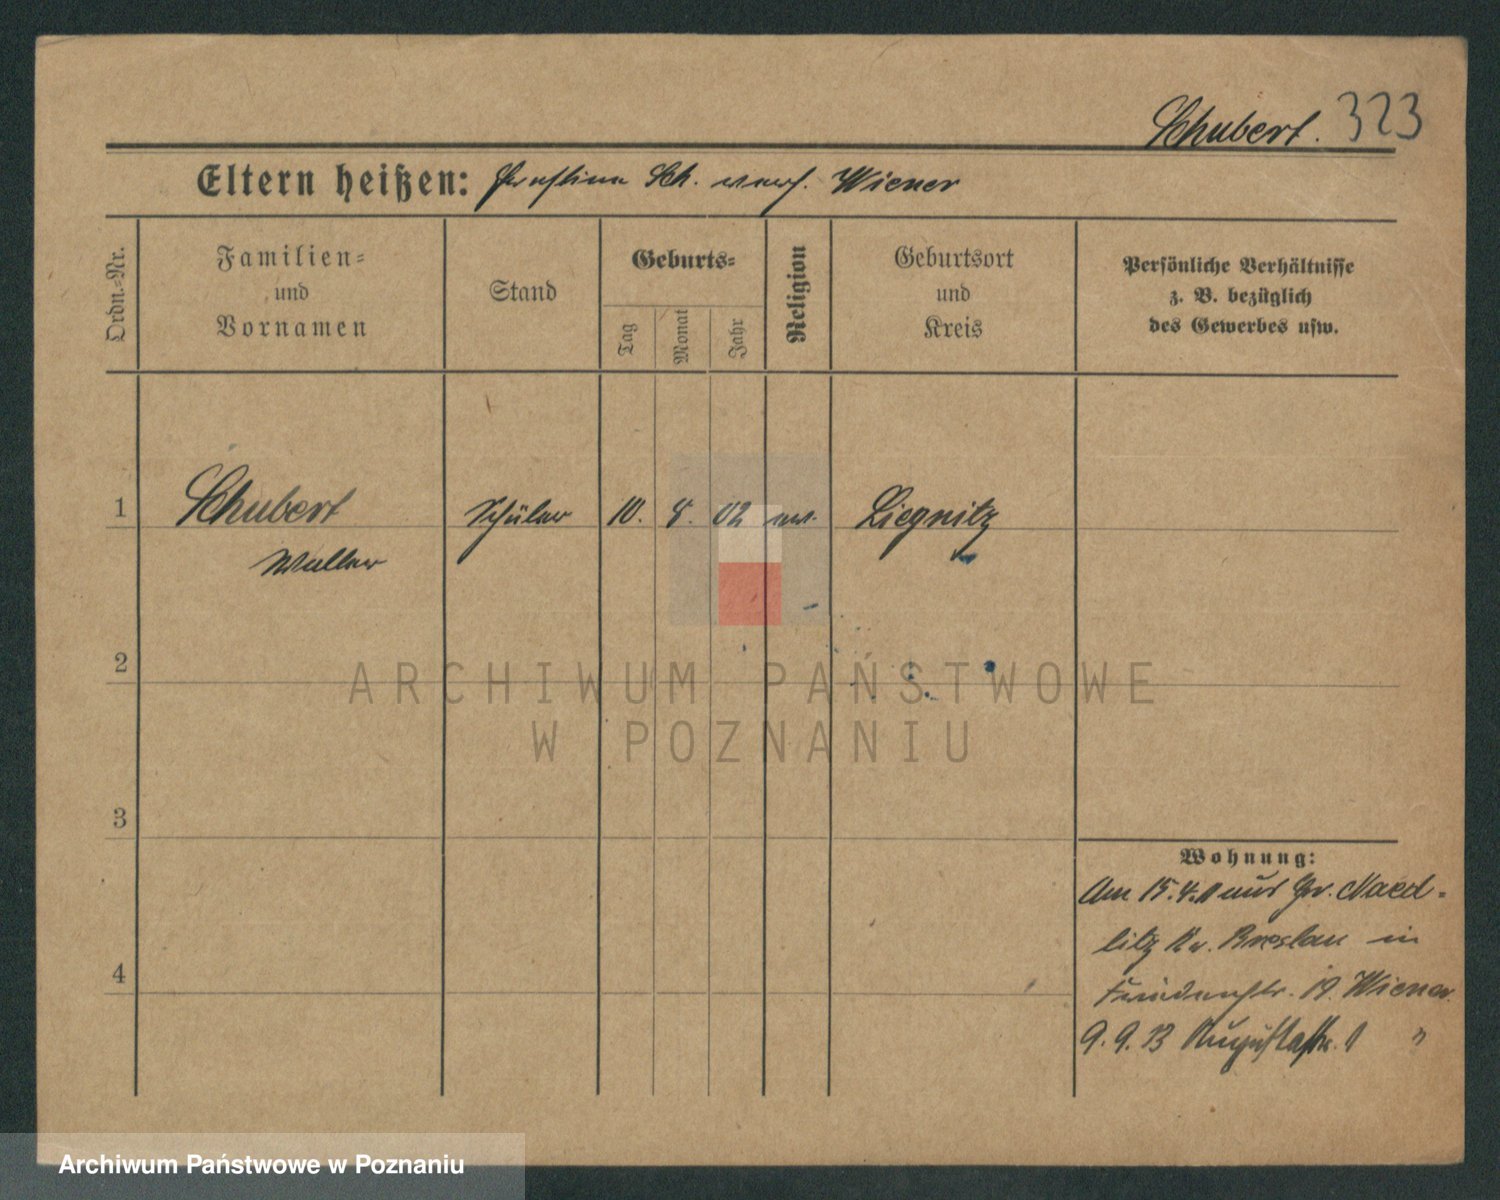 Schubert. 323
Eltern heißen: Sch. verh. Wiener
Ordn.=Nr.
Familien=
und
Vornamen
Stand
Geburts=
Tag
Monat
Jahr
Religion
Geburtsort
und
Kreis
Persönliche Verhältnisse
z. B. bezüglich
des Gewerbes usw.
1 Schubert Schüler 10. 8. 02 ev. Liegnitz
Walter
2
3
4
Wohnung:
Am 15.4. aus Gr. Naed=
litz Kr. Breslau in
19. Wiener
9. 9. 13 Augustastr. 1 "
ARCHIWUM PAŃSTWOWE
W POZNANIU
Archiwum Państwowe w Poznaniu